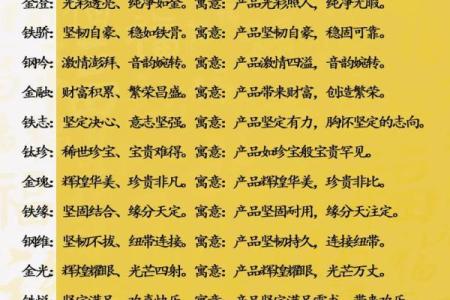 金澄：光彩透亮、纯净如金。寓意：产品光彩照人，纯净无瑕。
铁骄：坚韧自豪、稳如铁骨。寓意：产品坚韧自豪，稳固可靠。
钢吟：激情澎湃、音韵婉转。寓意：产品激情四溢，音韵婉转。
金融：财富积累、繁荣昌盛。寓意：产品带来财富，创造繁荣。
铁志：坚定决心、意志坚强。寓意：产品坚定有力，胸怀坚定的志向。
钛珍：稀世珍宝、宝贵难得。寓意：产品如珍宝般宝贵罕见。
金瑰：辉煌华美、珍贵非凡。寓意：产品辉煌华美，珍贵非比。
铁缘：坚固结合、缘分天定。寓意：产品坚固耐用，缘分天注定。
钢维：坚韧不拔、纽带连接。寓意：产品坚韧持久，连接纽带。
金光：辉煌耀眼、光芒四射。寓意：产品辉煌耀眼，光芒万丈。
铁悦：坚定满足、欢喜快乐。寓意：产品坚定满足需求，带来欢乐。